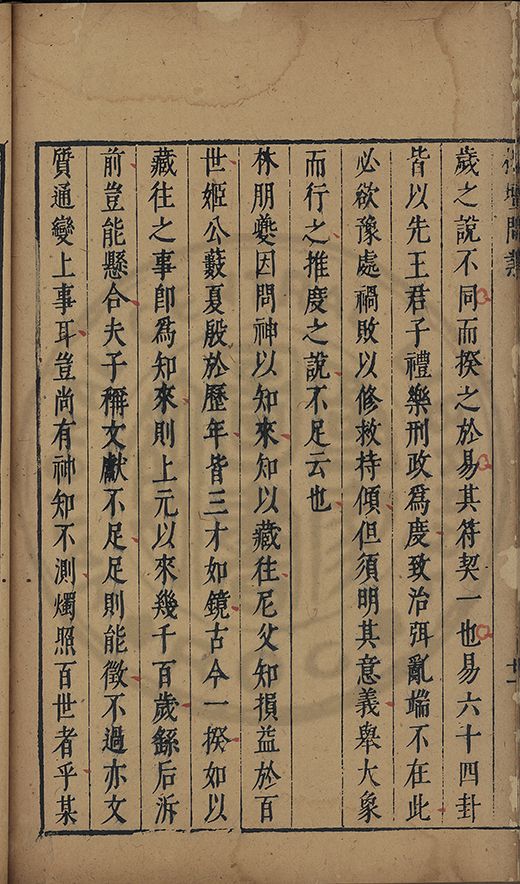 歲之說不同而揆之於易其符契一也易六十四卦
皆以先王君子禮樂刑政爲度致治弭亂端不在此
必欲豫處禍敗以修救持傾但須明其意義舉大象
而行之推度之說不足云也
林朋夔因問神以知來知以藏往尼父知損益於百
世姬公蔌夏殷於歷年皆三才如鏡古今一揆如以
藏往之事卽爲知來則上元以來幾千百歲繇后泝
前豈能懸合夫子稱文獻不足足則能徵不過亦文
質通變上事耳豈尚有神知不測燭照百世者乎某